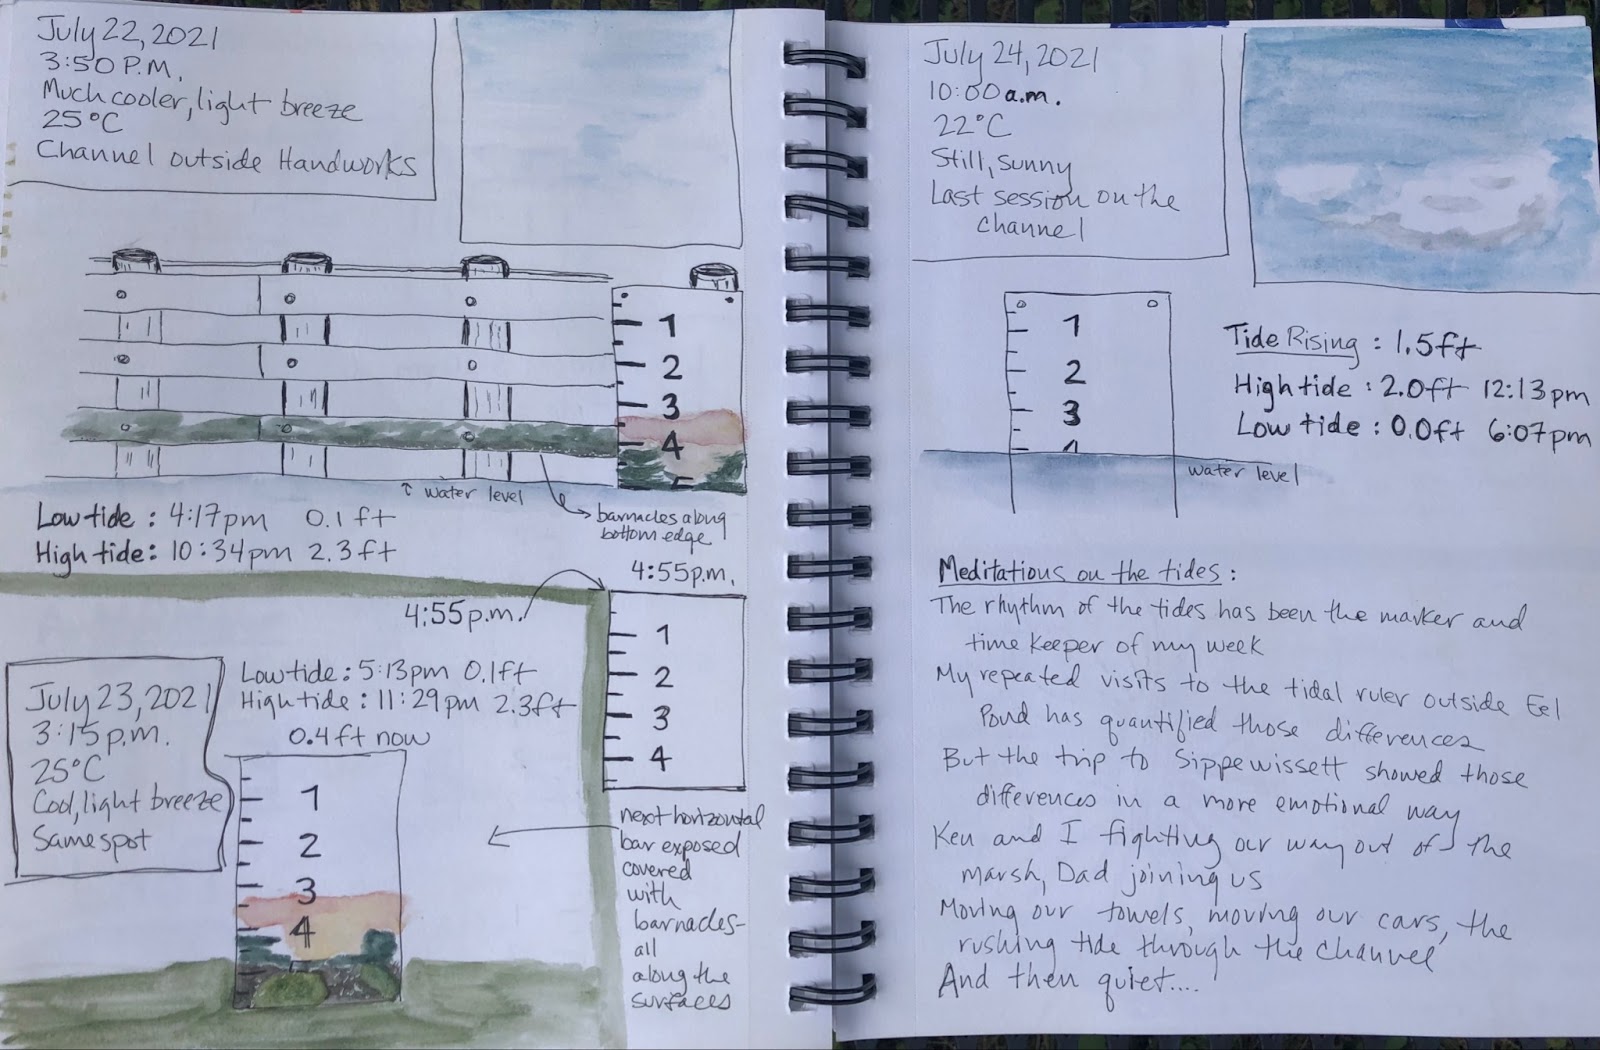 July 22, 2021
3:50 P.M.
Much cooler, light breeze
25°C
Channel outside Handworks
1
2
3
4
5
↑ water level
barnacles along
bottom edge
Low tide: 4:17pm 0.1 ft
High tide: 10:34pm 2.3 ft
4:55p.m.
4:55p.m.
1
2
3
4
next horizontal
bar exposed
covered
with
barnacles-
all
along the
surfaces
July 23, 2021
3:15 p.m.
25°C
Cool, light breeze
Same spot
Low tide: 5:13pm 0.1ft
High tide: 11:29pm 2.3ft
0.4ft now
1
2
3
4
5
July 24, 2021
10:00 a.m.
22°C
Still, sunny
Last session on the
channel
1
2
3
4
water level
Tide Rising: 1.5ft
High tide: 2.0ft 12:13pm
Low tide: 0.0ft 6:07pm
Meditations on the tides:
The rhythm of the tides has been the marker and
time keeper of my week
My repeated visits to the tidal ruler outside Eel
Pond has quantified those differences
But the trip to Sippewissett showed those
differences in a more emotional way
Ken and I fighting our way out of the
marsh, Dad joining us
Moving our towels, moving our cars, the
rushing tide through the channel
And then quiet....